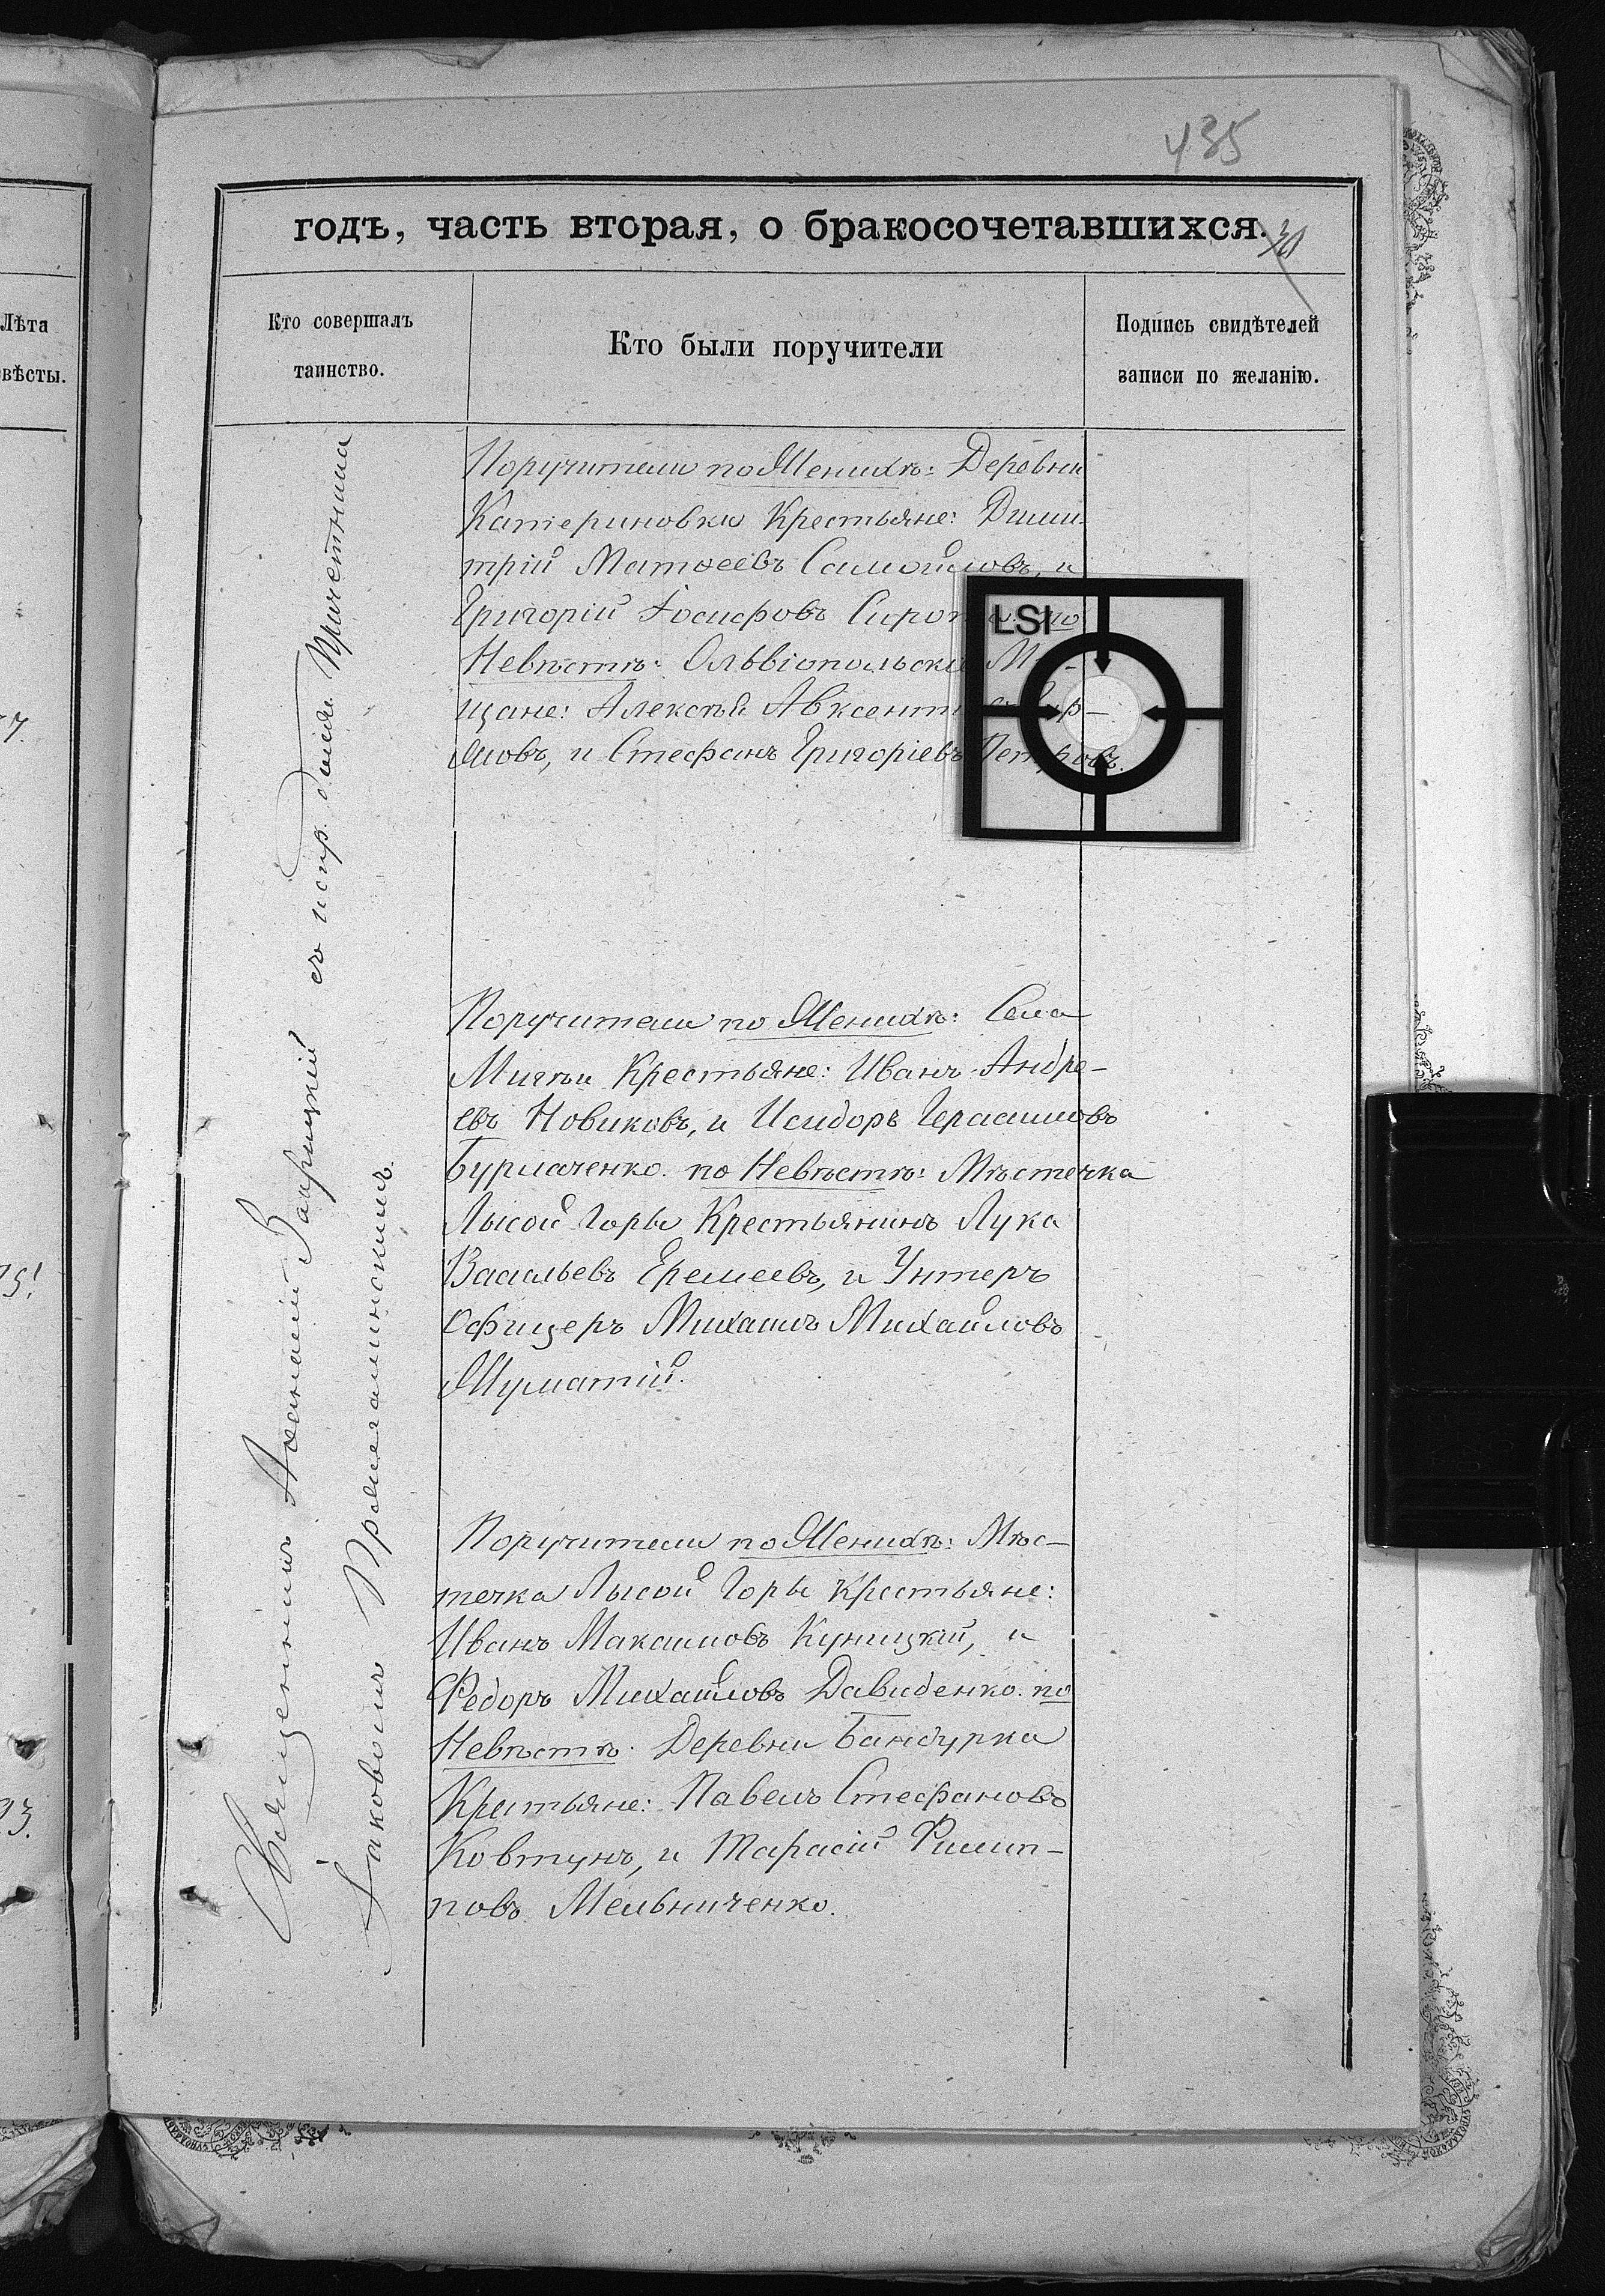 435
годъ, часть вторая, о бракосочетавшихся.
30
Лѣта
вѣсты.
Кто совершалъ
таинство.
Кто были поручители
Подпись свидѣтелей
записи по желанію.
Священникъ Аѳанасій съ испр. долж. Причетника
Іаковомъ
Поручители по Женихѣ: Деревни
Катериновки Крестьяне: Дими-
трій Матѳеевъ Самойловъ, и
Григорій Іосифовъ
Невѣстѣ: Ольвіопольскі
щане: Алексѣй
и Стефанъ Григоріевъ Петровъ.
LSI
Поручители по Женихѣ: Села
Мигѣи Крестьяне: Иванъ Андре-
евъ Новиковъ, и Исидоръ Герасимовъ
Бурлаченко. по Невѣстѣ: Мѣстечка
Лысой Горы Крестьянинъ Лука
Васильевъ Еремеевъ, и Унтеръ
Офицеръ Михаилъ Михайловъ
Поручители по Женихѣ: Мѣс-
течка Лысой Горы Крестьяне:
Иванъ Максимовъ Куницкій, и
Федоръ Михайловъ Давиденко. по
Невѣстѣ: Деревни Бандурка
Крестьяне: Павелъ Стефановъ
Ковтунъ, и Тарасій Филип-
повъ Мельниченко.